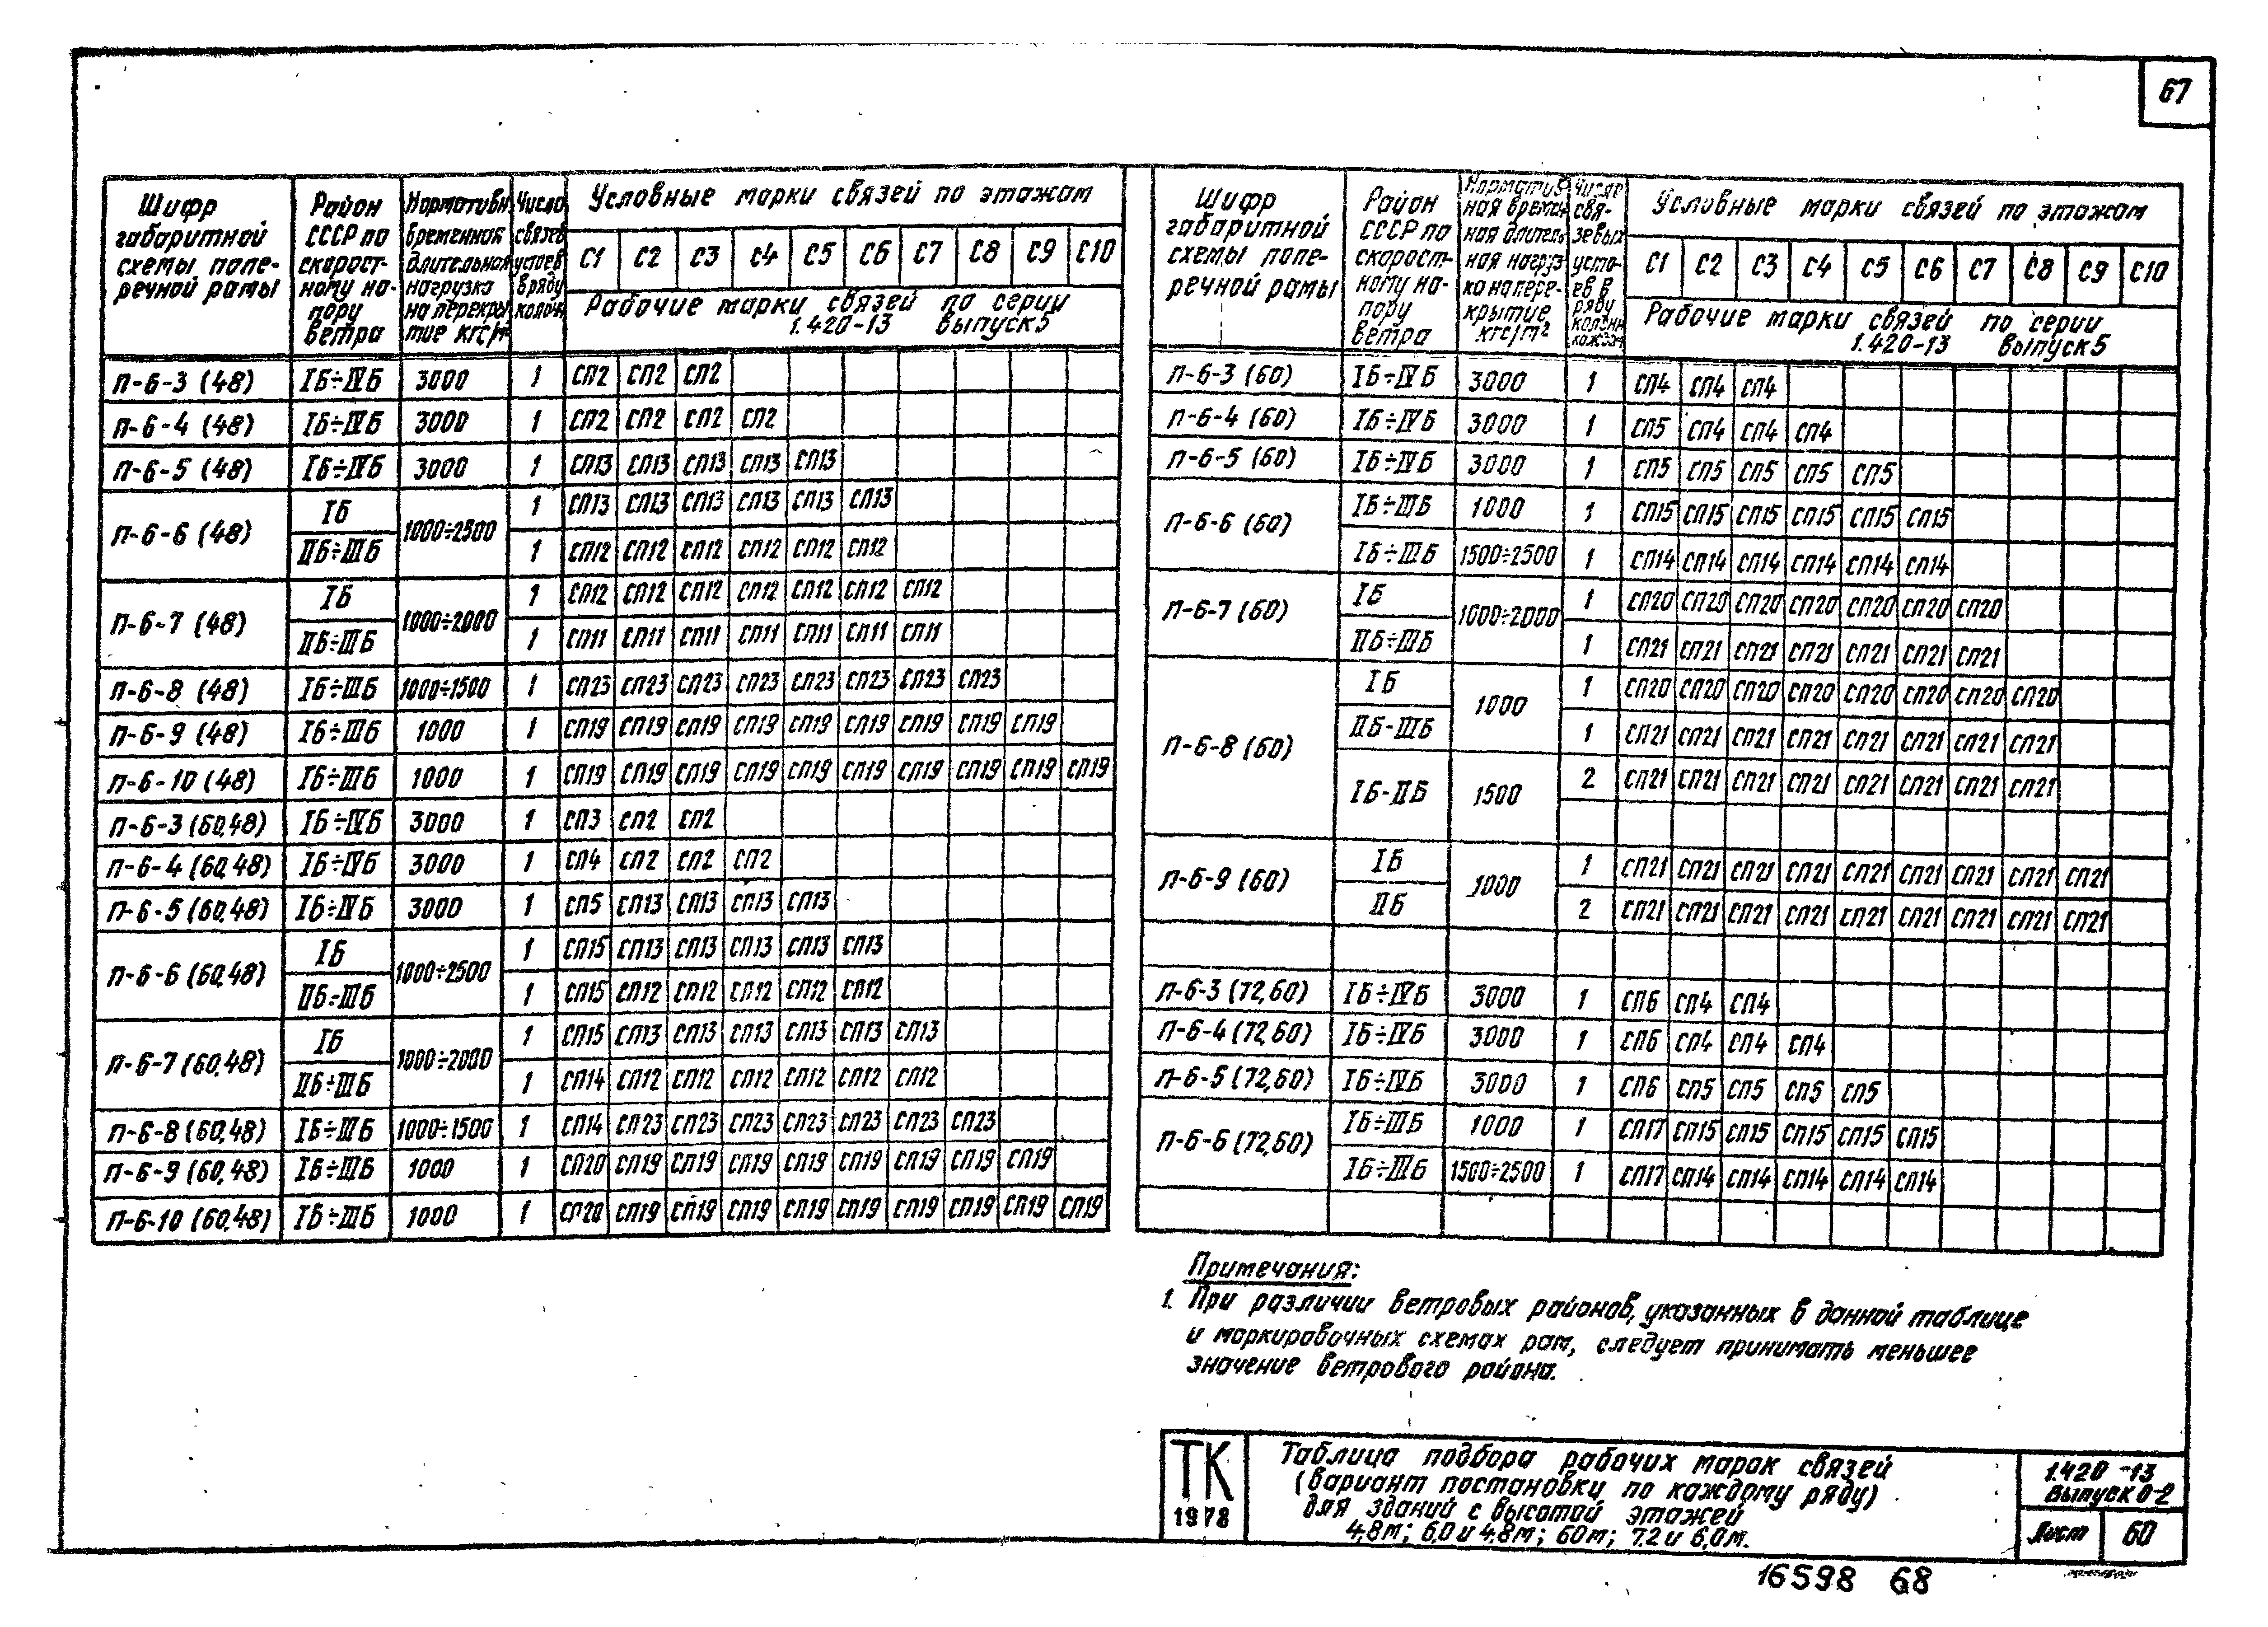 67
Шифр габаритной схемы попе- речной рамы
Район СССР по скорост- ному на- пору ветра
Нормативн временная длительная нагрузка на перекры тие кгс/м²
Число связев устоев в ряду колонн
Условные марки связей по этажам
С1 С2 С3 С4 С5 С6 С7 С8 С9 С10
Рабочие марки связей по серии
1.420-13 выпуск 5
П-6-3 (48) IБ÷IVБ 3000 1 СП2 СП2 СП2
П-6-4 (48) IБ÷IVБ 3000 1 СП2 СП2 СП2 СП2
П-6-5 (48) IБ÷IVБ 3000 1 СП13 СП13 СП13 СП13 СП13
П-6-6 (48) IБ 1000÷2500 1 СП13 СП13 СП13 СП13 СП13 СП13
IIБ÷IIIБ 1 СП12 СП12 СП12 СП12 СП12 СП12
П-6-7 (48) IБ 1000÷2000 1 СП12 СП12 СП12 СП12 СП12 СП12 СП12
IIБ÷IIIБ 1 СП11 СП11 СП11 СП11 СП11 СП11 СП11
П-6-8 (48) IБ÷IIIБ 1000÷1500 1 СП23 СП23 СП23 СП23 СП23 СП23 СП23 СП23
П-6-9 (48) IБ÷IIIБ 1000 1 СП19 СП19 СП19 СП19 СП19 СП19 СП19 СП19 СП19
П-6-10 (48) IБ÷IIIБ 1000 1 СП19 СП19 СП19 СП19 СП19 СП19 СП19 СП19 СП19 СП19
П-6-3 (60,48) IБ÷IVБ 3000 1 СП3 СП2 СП2
П-6-4 (60,48) IБ÷IVБ 3000 1 СП4 СП2 СП2 СП2
П-6-5 (60,48) IБ÷IVБ 3000 1 СП5 СП13 СП13 СП13 СП13
П-6-6 (60,48) IБ 1000÷2500 1 СП15 СП13 СП13 СП13 СП13 СП13
IIБ÷IIIБ 1 СП15 СП12 СП12 СП12 СП12 СП12
П-6-7 (60,48) IБ 1000÷2000 1 СП15 СП13 СП13 СП13 СП13 СП13 СП13
IIБ÷IIIБ 1 СП14 СП12 СП12 СП12 СП12 СП12 СП12
П-6-8 (60,48) IБ÷IIIБ 1000÷1500 1 СП14 СП23 СП23 СП23 СП23 СП23 СП23 СП23
П-6-9 (60,48) IБ÷IIIБ 1000 1 СП20 СП19 СП19 СП19 СП19 СП19 СП19 СП19 СП19
П-6-10 (60,48) IБ÷IIIБ 1000 1 СП20 СП19 СП19 СП19 СП19 СП19 СП19 СП19 СП19 СП19
Шифр габаритной схемы попе- речной рамы
Район СССР по скорост- ному на- пору ветра
Норматив- ная времен- ная длитель- ная нагруз- ка на пере- крытие кгс/м²
Число свя- зевых усто- ев в ряду колонн
Условные марки связей по этажам
С1 С2 С3 С4 С5 С6 С7 С8 С9 С10
Рабочие марки связей по серии
1.420-13 выпуск 5
П-6-3 (60) IБ÷IVБ 3000 1 СП4 СП4 СП4
П-6-4 (60) IБ÷IVБ 3000 1 СП5 СП4 СП4 СП4
П-6-5 (60) IБ÷IVБ 3000 1 СП5 СП5 СП5 СП5 СП5
П-6-6 (60) IБ÷IIIБ 1000 1 СП15 СП15 СП15 СП15 СП15 СП15
IБ÷IIIБ 1500÷2500 1 СП14 СП14 СП14 СП14 СП14 СП14
П-6-7 (60) IБ 1000÷2000 1 СП20 СП20 СП20 СП20 СП20 СП20 СП20
IIБ÷IIIБ 1 СП21 СП21 СП21 СП21 СП21 СП21 СП21
П-6-8 (60) IБ 1000 1 СП20 СП20 СП20 СП20 СП20 СП20 СП20 СП20
IIБ-IIIБ 1 СП21 СП21 СП21 СП21 СП21 СП21 СП21 СП21
IБ-IIБ 1500 2 СП21 СП21 СП21 СП21 СП21 СП21 СП21 СП21
П-6-9 (60) IБ 1000 1 СП21 СП21 СП21 СП21 СП21 СП21 СП21 СП21 СП21
IIБ 2 СП21 СП21 СП21 СП21 СП21 СП21 СП21 СП21 СП21
П-6-3 (72,60) IБ÷IVБ 3000 1 СП6 СП4 СП4
П-6-4 (72,60) IБ÷IVБ 3000 1 СП6 СП4 СП4 СП4
П-6-5 (72,60) IБ÷IVБ 3000 1 СП6 СП5 СП5 СП5 СП5
П-6-6 (72,60) IБ÷IIIБ 1000 1 СП17 СП15 СП15 СП15 СП15 СП15
IБ÷IIIБ 1500÷2500 1 СП17 СП14 СП14 СП14 СП14 СП14
Примечания:
1. При различии ветровых районов, указанных в данной таблице
и маркировочных схемах рам, следует принимать меньшее
значение ветрового района.
ТК
1978
Таблица подбора рабочих марок связей
(вариант постановки по каждому ряду)
для зданий с высотой этажей
4,8м; 6,0 и 4,8м; 60м; 7,2 и 6,0м.
1.420-13
Выпуск 0-2
Лист 60
16598 68